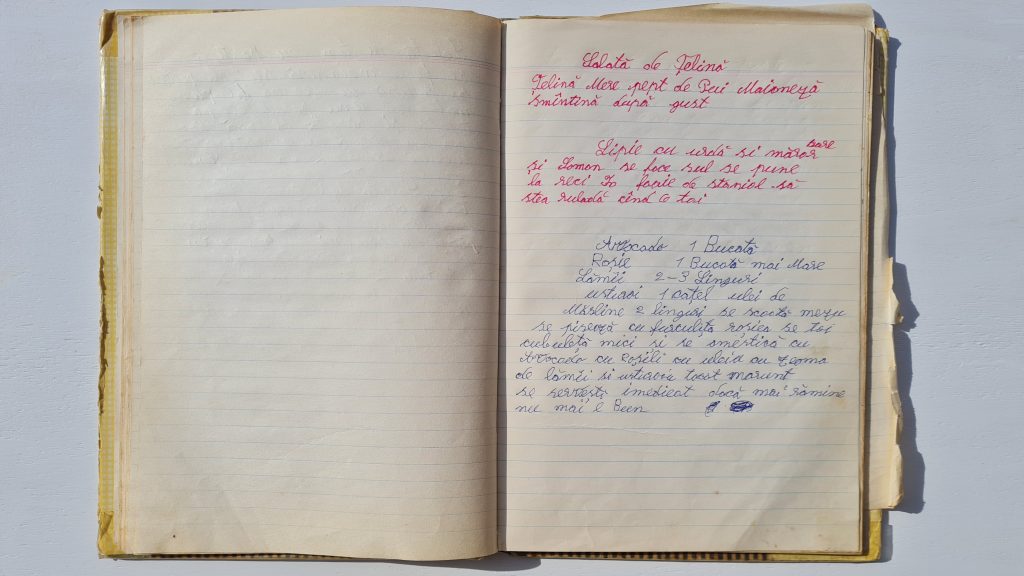 Salată de Țelină
Țelină Mere pept de Pui Maioneză
smîntină după gust
Lipie cu urdă si mărar sare
și Somon se face sul se pune
la reci În foaie de staniol să
stea ruladă cînd o tai
Avocado 1 Bucată
Roșie 1 Bucată mai Mare
Lămîi 2-3 Linguri
usturoi 1 Cățel ulei de
Masline 2 linguri se scoate mezu
se pisează cu furculița roșiea se tai
cubulețe mici si se amestică cu
Avocado cu Roșili cu uleia cu zeama
de lămîi si usturoia tocat marunt
se servește imedieat dacă mai rămîne
nu mai e Bun